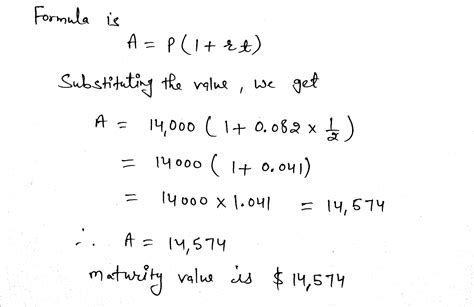 Formula is
A = P(1 + rt)
Substituting the value, we get
A = 14,000 (1 + 0.082 × 1/2)
= 14000 (1 + 0.041)
= 14000 × 1.041 = 14,574
∴ A = 14,574
maturity value is $14,574